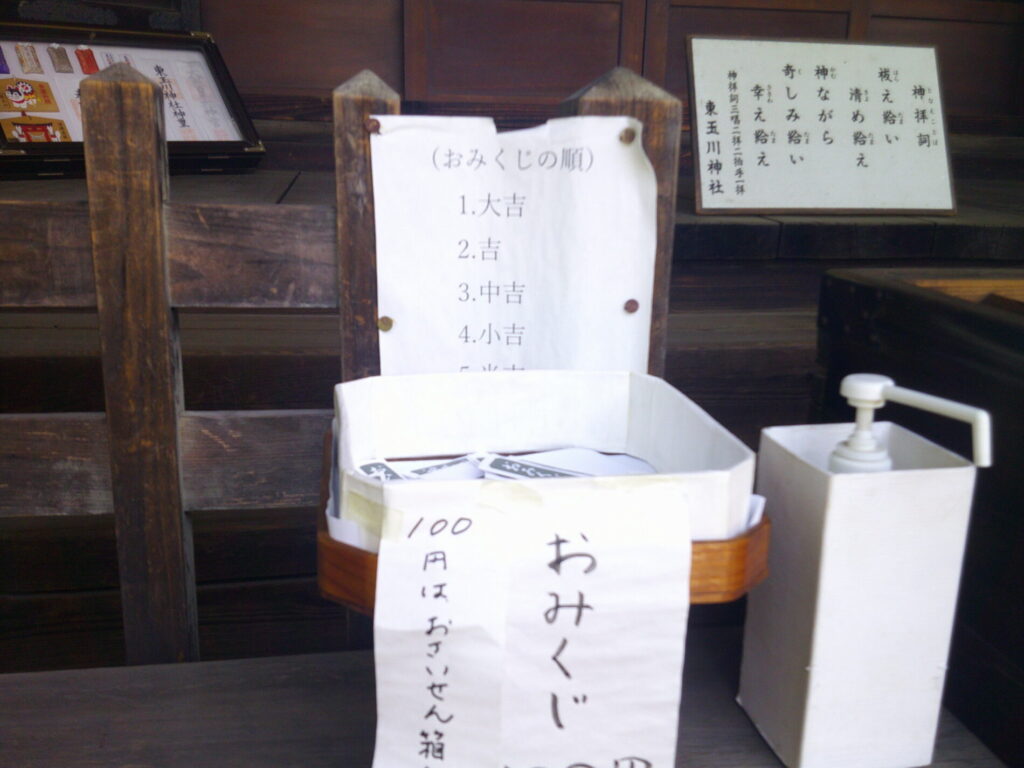 (おみくじの順)
1.大吉
2.吉
3.中吉
4.小吉
神拝詞
となえことば
祓え給い
清め給え
神ながら
奇しみ給い
幸え給え
神拝詞三唱二拝二拍手一拝
東玉川神社
東玉川神社神璽
おみくじ
100円は、おさいせん箱